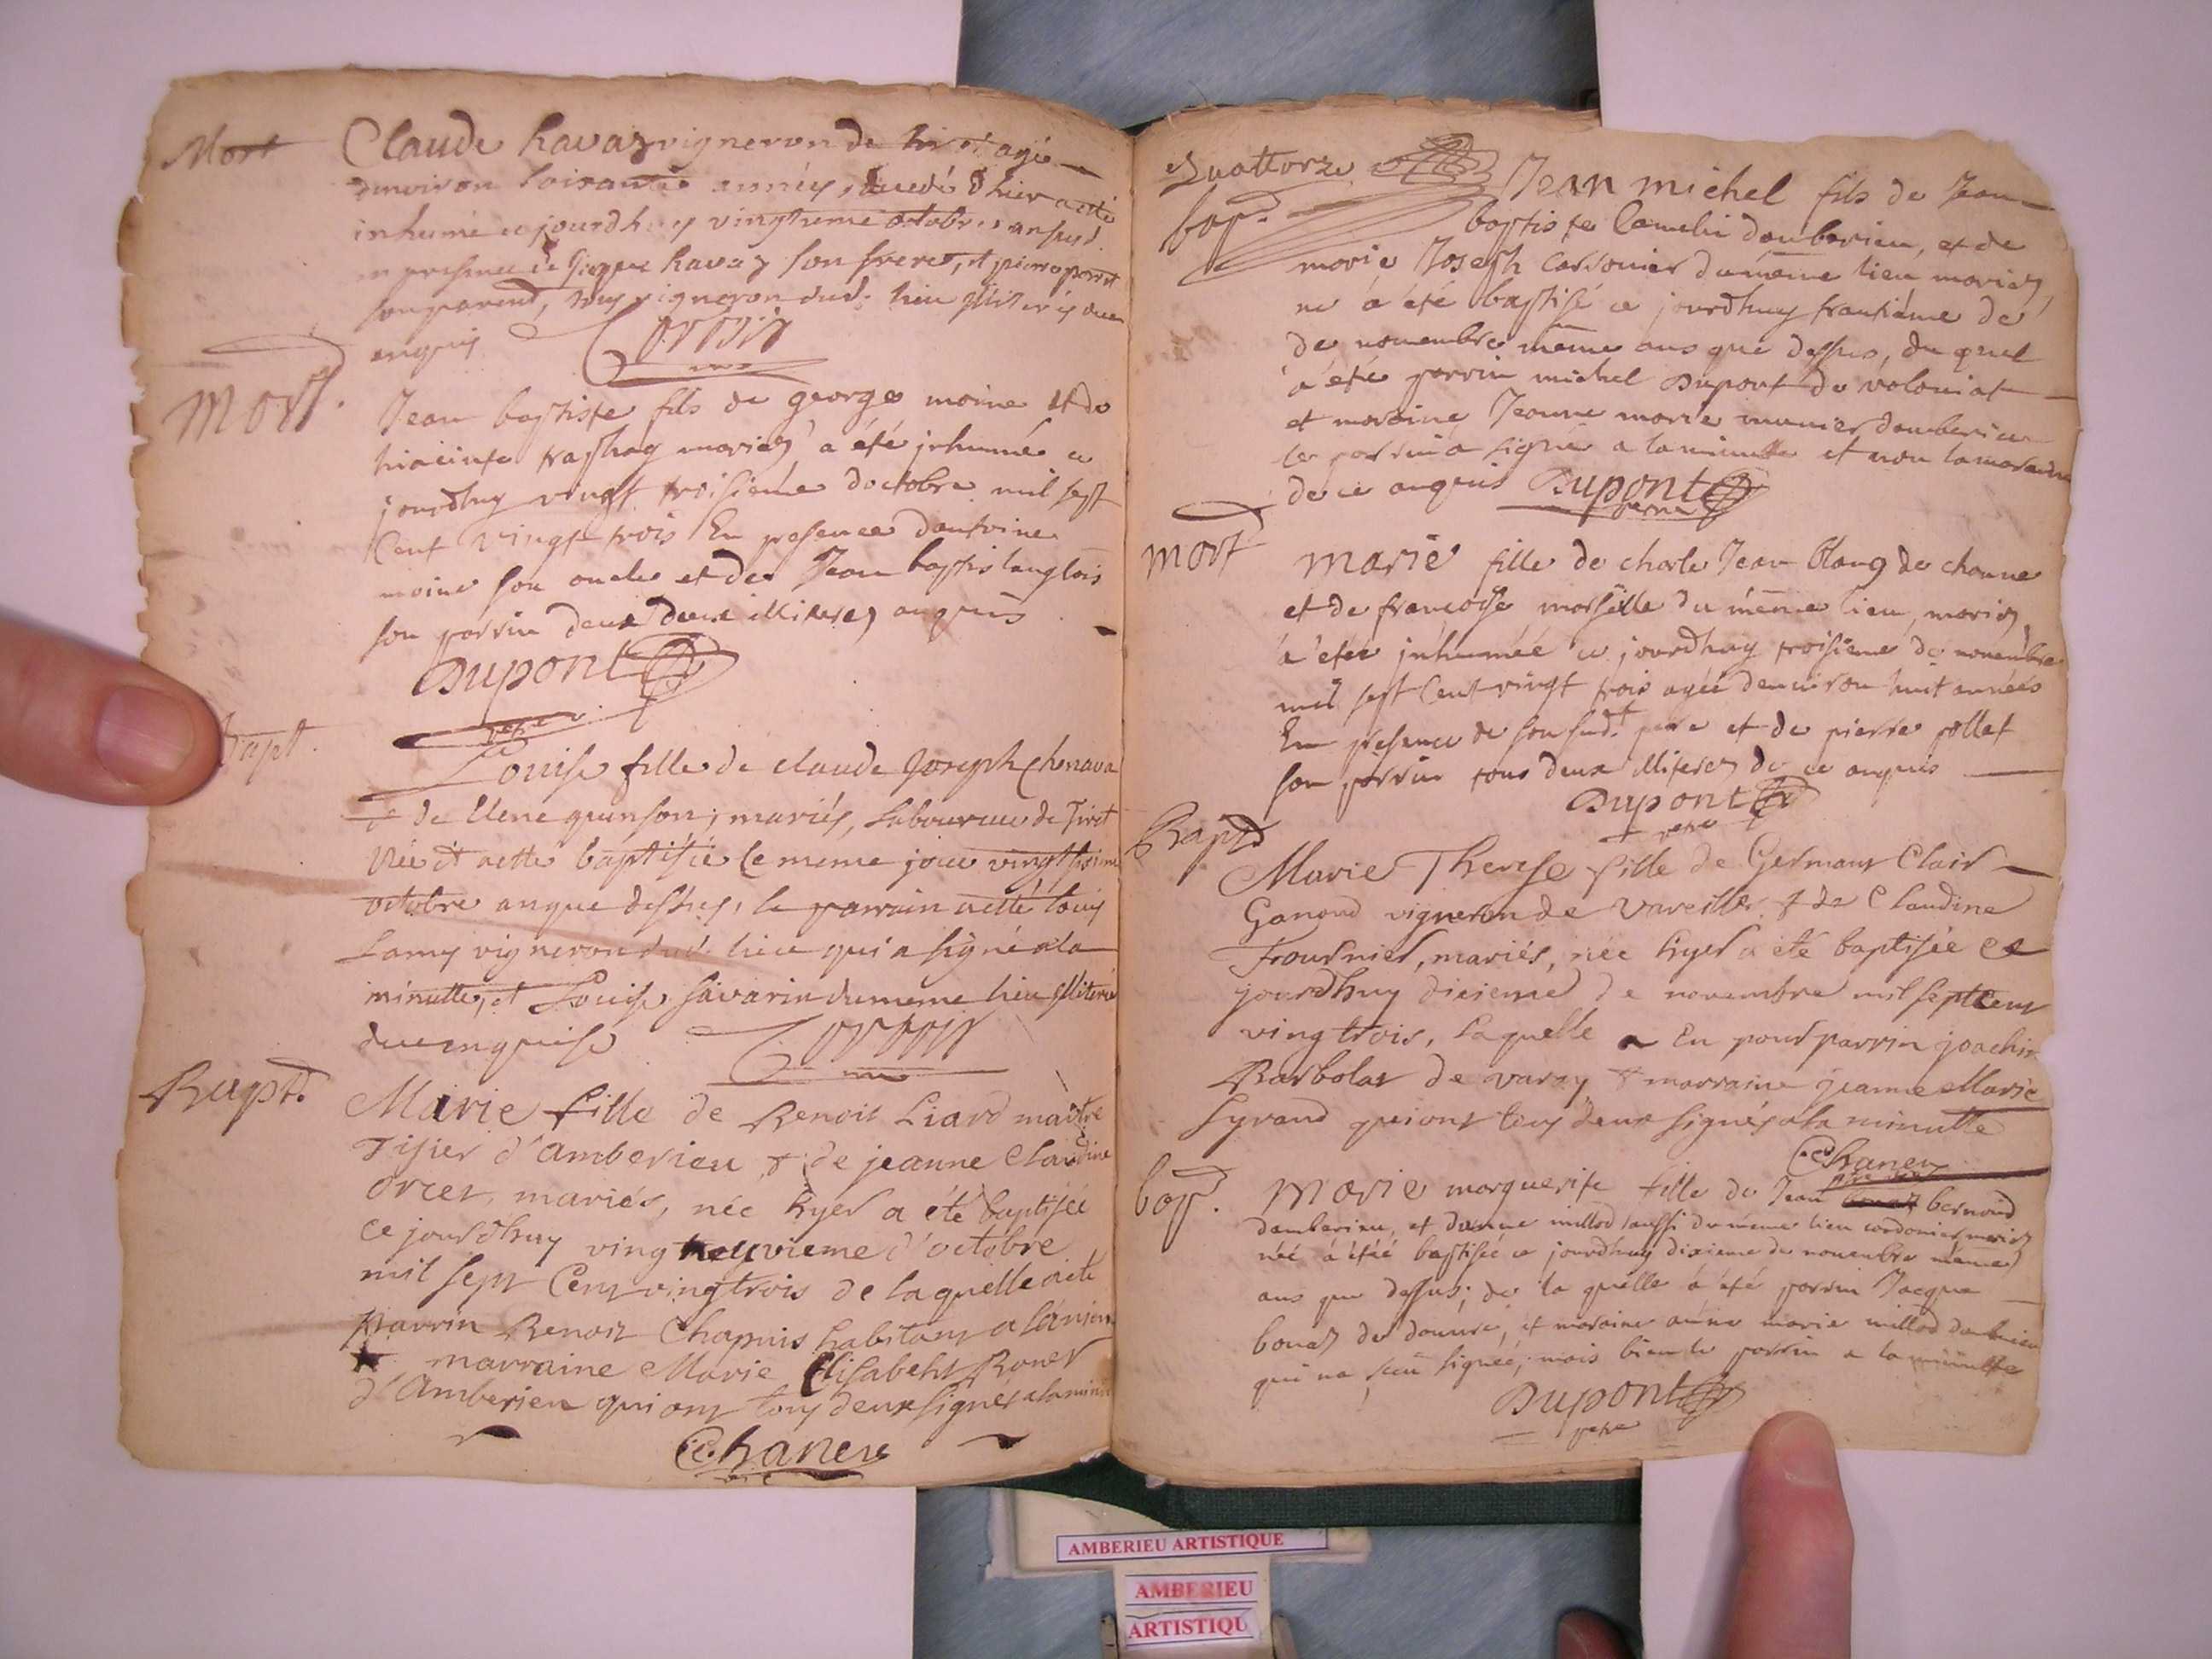 Mort
Claude Ravaz vigneron de agé
denviron soixante années, decedé d'hier a été
inhumé ce jourdhuy vingtieme octobre an susd.
en presence de Ravaz son frere, et pierre
son parend, tous vigneron dud. lieu
enquis
Mort.
Jean baptiste fils de george moine et de
hiacinte mariez a été inhumé ce
jourdhuy vingt troisiéme doctobre mil sept
Cent vingt trois En presence dantoine
moine son oncle et de Jean baptis langlois
son parrin deux illiterez enquis
Dupont
Bapt.
Louise fille de claude Joseph Chenava
et de Elene quinson, mariés, Laboureur de Tiret
Née et a été baptisée le meme jour
octobre an que dessus, le parrain a été louis
Lamy vigneron dud. lieu qui a signé a la
minutte, et Louise savarin du meme lieu illiteré
enquise
Bapt.
Marie fille de Benoit Liard maitre
Tisier d'Amberieu & de jeanne Claudine
orcet, mariés, née hyer a été baptisée
ce jourdhuy vingt neuvieme d'octobre
mil sept Cent vingtrois de laquelle a eté
parrin Benoit Chapuis habitant a
marraine Marie Elisabeht
d'Amberieu qui ont tous deux signés a la minu
Chanel
Quattorze
bap.
Jean michel fils de Jean
baptiste damberieu, et de
marie Joseph du méme lieu mariez
né a été baptisé ce jourdhuy trantiéme de
de nouembre méme ans que dessus, du quel
a été parrin michel Dupont de
et maraine Jeanne marie munier damberieu
le parrin a signé a la minutte et non la maraine
de ce enquis Dupont
mort
marie fille de charle Jean blang de
et de francoise du méme lieu, mariez
a étée inhumée ce jourdhuy troisieme de nouembre
mil sept Cent vingt trois agée denuiron huit années
En presence de son sudt pere et de pierre pollet
son parrin tous deux illiterez de ce enquis
Dupont
Bapt.
Marie Therese fille de Germain Clair
Ganoud vigneron de Vareilles & de Claudine
Trournier, mariés, née hyer a été baptisée ce
jourdhuy dixieme de novembre mil sept cent
vingtrois, Laquelle a Eu pour parrin joachin
Barbolat de varay & marraine jeanne Marie
Syrand qui ont tous deux signés a la minutte
Chanel
bap.
marie marguerite fille de Jean bernoud
damberieu, et danne millod aussi du méme lieu cordonier mariez
née a étée baptisée ce jourdhuy dixieme de nouembre méme
ans que dessus; de la quelle a été parrin Jacque
bouaz de douure, et maraine anne marie millod damberieu
qui na sceu signée; mais bien le parrin a la minutte
Dupont
AMBERIEU ARTISTIQUE
AMBERIEU
ARTISTIQU